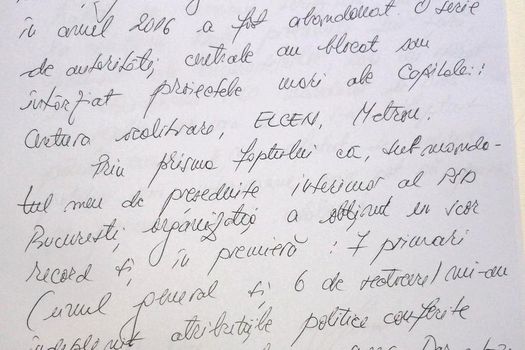 în anul 2016 a fost abandonat. O serie
de autorități centrale au blocat sau
întârziat proiectele mari ale Capitalei:
Centura ocolitoare, ELCEN, Metrou.
Prin prisma faptului că, sub manda-
tul meu de președinte interimar al PSD
București, organizația a obținut un scor
record și în premieră : 7 primari
(unul general și 6 de sectoare) mi-au
atribuțiile politice conferite